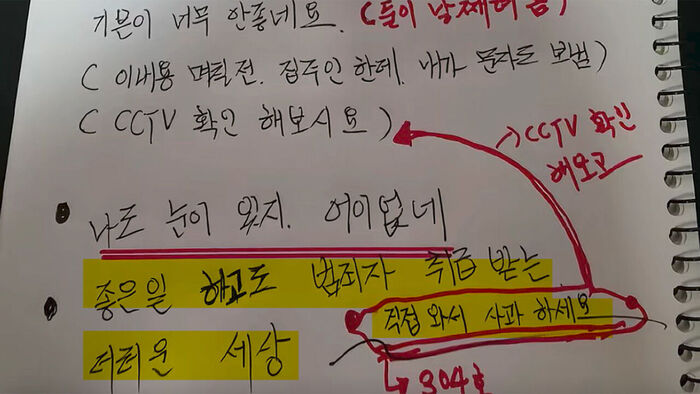 기분이 너무 안좋네요. (둘이 날째려 봄)
( 이내용 며칠전. 집주인 한테. 내가 문자도 보냄 )
( CCTV 확인 해보시요 )
CCTV 확인
해보고
나도 눈이 있지. 어이없네
좋은일 해고도 범죄자 취급 받는
더러운 세상
직접 와서 사과 하세요
304호